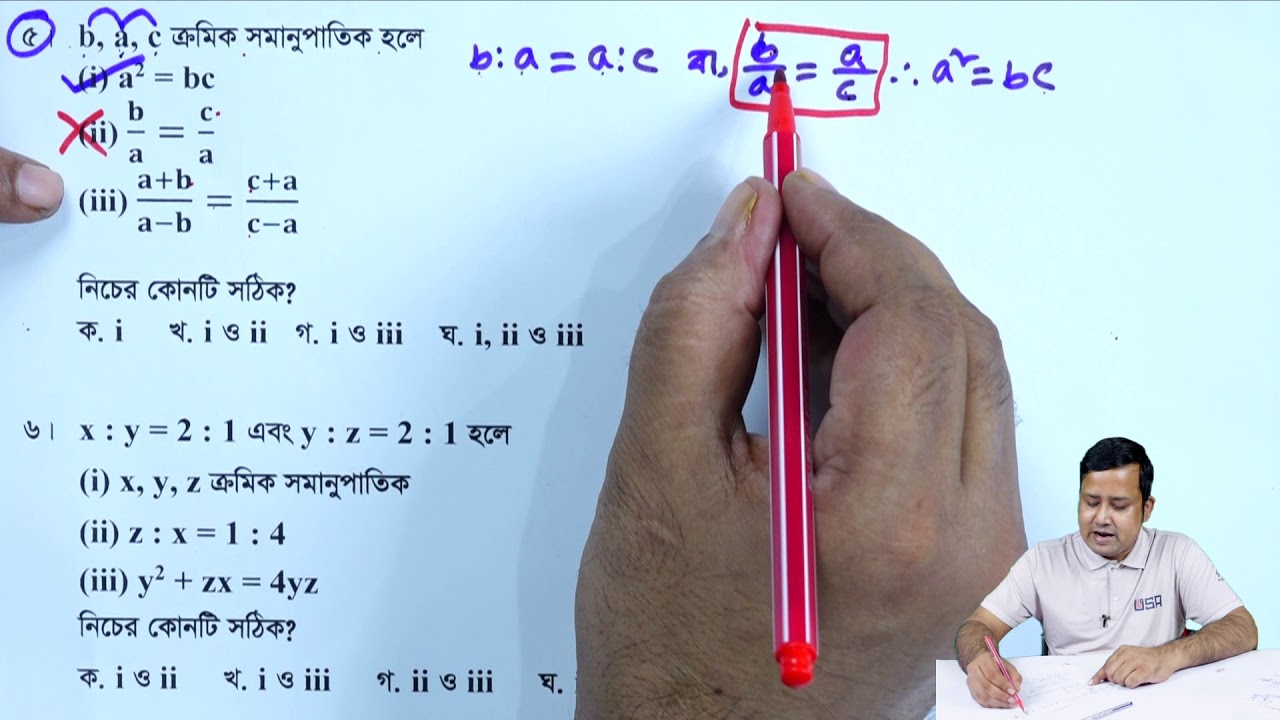 ৫। b, a, c ক্রমিক সমানুপাতিক হলে
b : a = a : c বা, b/a = a/c ∴ a² = bc
(i) a² = bc
(ii) b/a = c/a
(iii) a+b/a−b = c+a/c−a
নিচের কোনটি সঠিক?
ক. i খ. i ও ii গ. i ও iii ঘ. i, ii ও iii
৬। x : y = 2 : 1 এবং y : z = 2 : 1 হলে
(i) x, y, z ক্রমিক সমানুপাতিক
(ii) z : x = 1 : 4
(iii) y² + zx = 4yz
নিচের কোনটি সঠিক?
ক. i ও ii খ. i ও iii গ. ii ও iii ঘ.